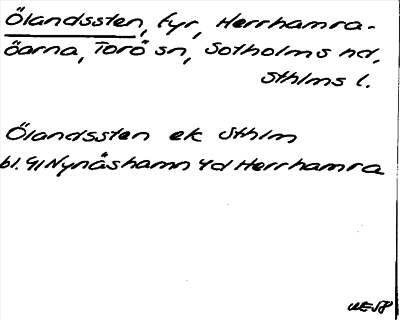 Ölandssten, fyr, Herrhamra-
öarna, Torö sn, Sotholms hd,
Sthlms l.
Ölandssten ek Sthlm
bl. 91 Nynäshamn 4d Herrhamra